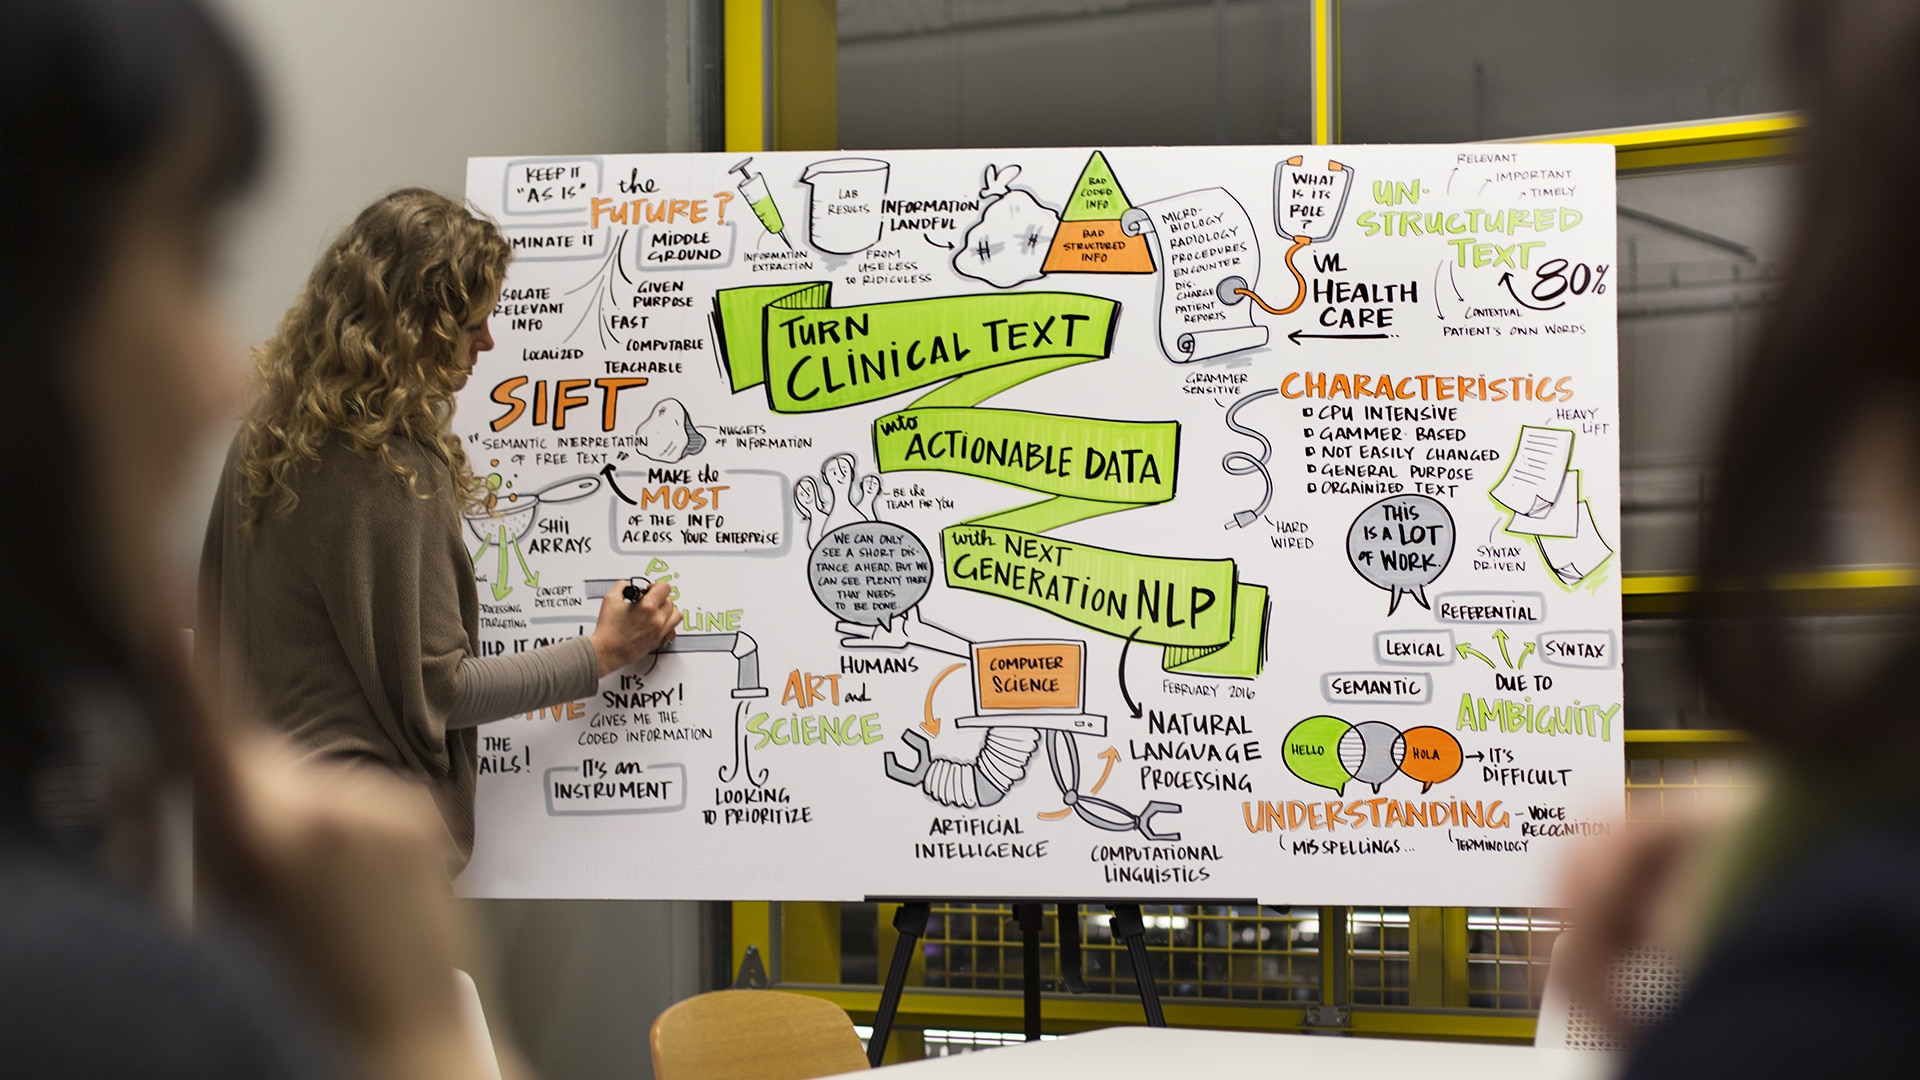 KEEP IT
"AS IS"
the
FUTURE?
MINATE IT
MIDDLE
GROUND
SOLATE
RELEVANT
INFO
LOCALIZED
GIVEN
PURPOSE
FAST
COMPUTABLE
TEACHABLE
SIFT
"SEMANTIC INTERPRETATION
OF FREE TEXT"
NUGGETS
OF INFORMATION
MAKE the
MOST
OF THE INFO
ACROSS YOUR ENTERPRISE
SHII
ARRAYS
CONCEPT
DETECTION
TARGETING
LINE
IT'S
SNAPPY!
GIVES ME THE
CODED INFORMATION
THE
AILS!
IT'S an
INSTRUMENT
LOOKING
TO PRIORITIZE
INFORMATION
EXTRACTION
LAB
RESULTS
INFORMATION
LANDFUL
FROM
USELESS
to RIDICULESS
BAD
CODED
INFO
BAD
STRUCTURED
INFO
MICRO-
BIOLOGY
RADIOLOGY
PROCEDURES
ENCOUNTER
DIS-
CHARGE
PATIENT
REPORTS
WHAT
IS ITS
ROLE
?
IN
HEALTH
CARE
RELEVANT
IMPORTANT
TIMELY
UN-
STRUCTURED
TEXT
80%
CONTEXTUAL
PATIENT'S OWN WORDS
TURN
CLINICAL TEXT
into
ACTIONABLE DATA
with NEXT
GENERATION NLP
FEBRUARY 2016
BE the
TEAM FOR YOU
WE CAN ONLY
SEE A SHORT DIS-
TANCE AHEAD, BUT WE
CAN SEE PLENTY THERE
THAT NEEDS
TO BE DONE.
HUMANS
ART and
SCIENCE
COMPUTER
SCIENCE
ARTIFICIAL
INTELLIGENCE
NATURAL
LANGUAGE
PROCESSING
COMPUTATIONAL
LINGUISTICS
GRAMMER
SENSITIVE
CHARACTERISTICS
CPU INTENSIVE
GAMMER-BASED
NOT EASILY CHANGED
GENERAL PURPOSE
ORGAINIZED TEXT
HEAVY
LIFT
HARD
WIRED
THIS
IS A LOT
OF WORK.
SYNTAX
DRIVEN
REFERENTIAL
LEXICAL
SYNTAX
SEMANTIC
DUE TO
AMBIGUITY
HELLO
HOLA
IT'S
DIFFICULT
UNDERSTANDING
VOICE
RECOGNITION
MISSPELLINGS...
TERMINOLOGY